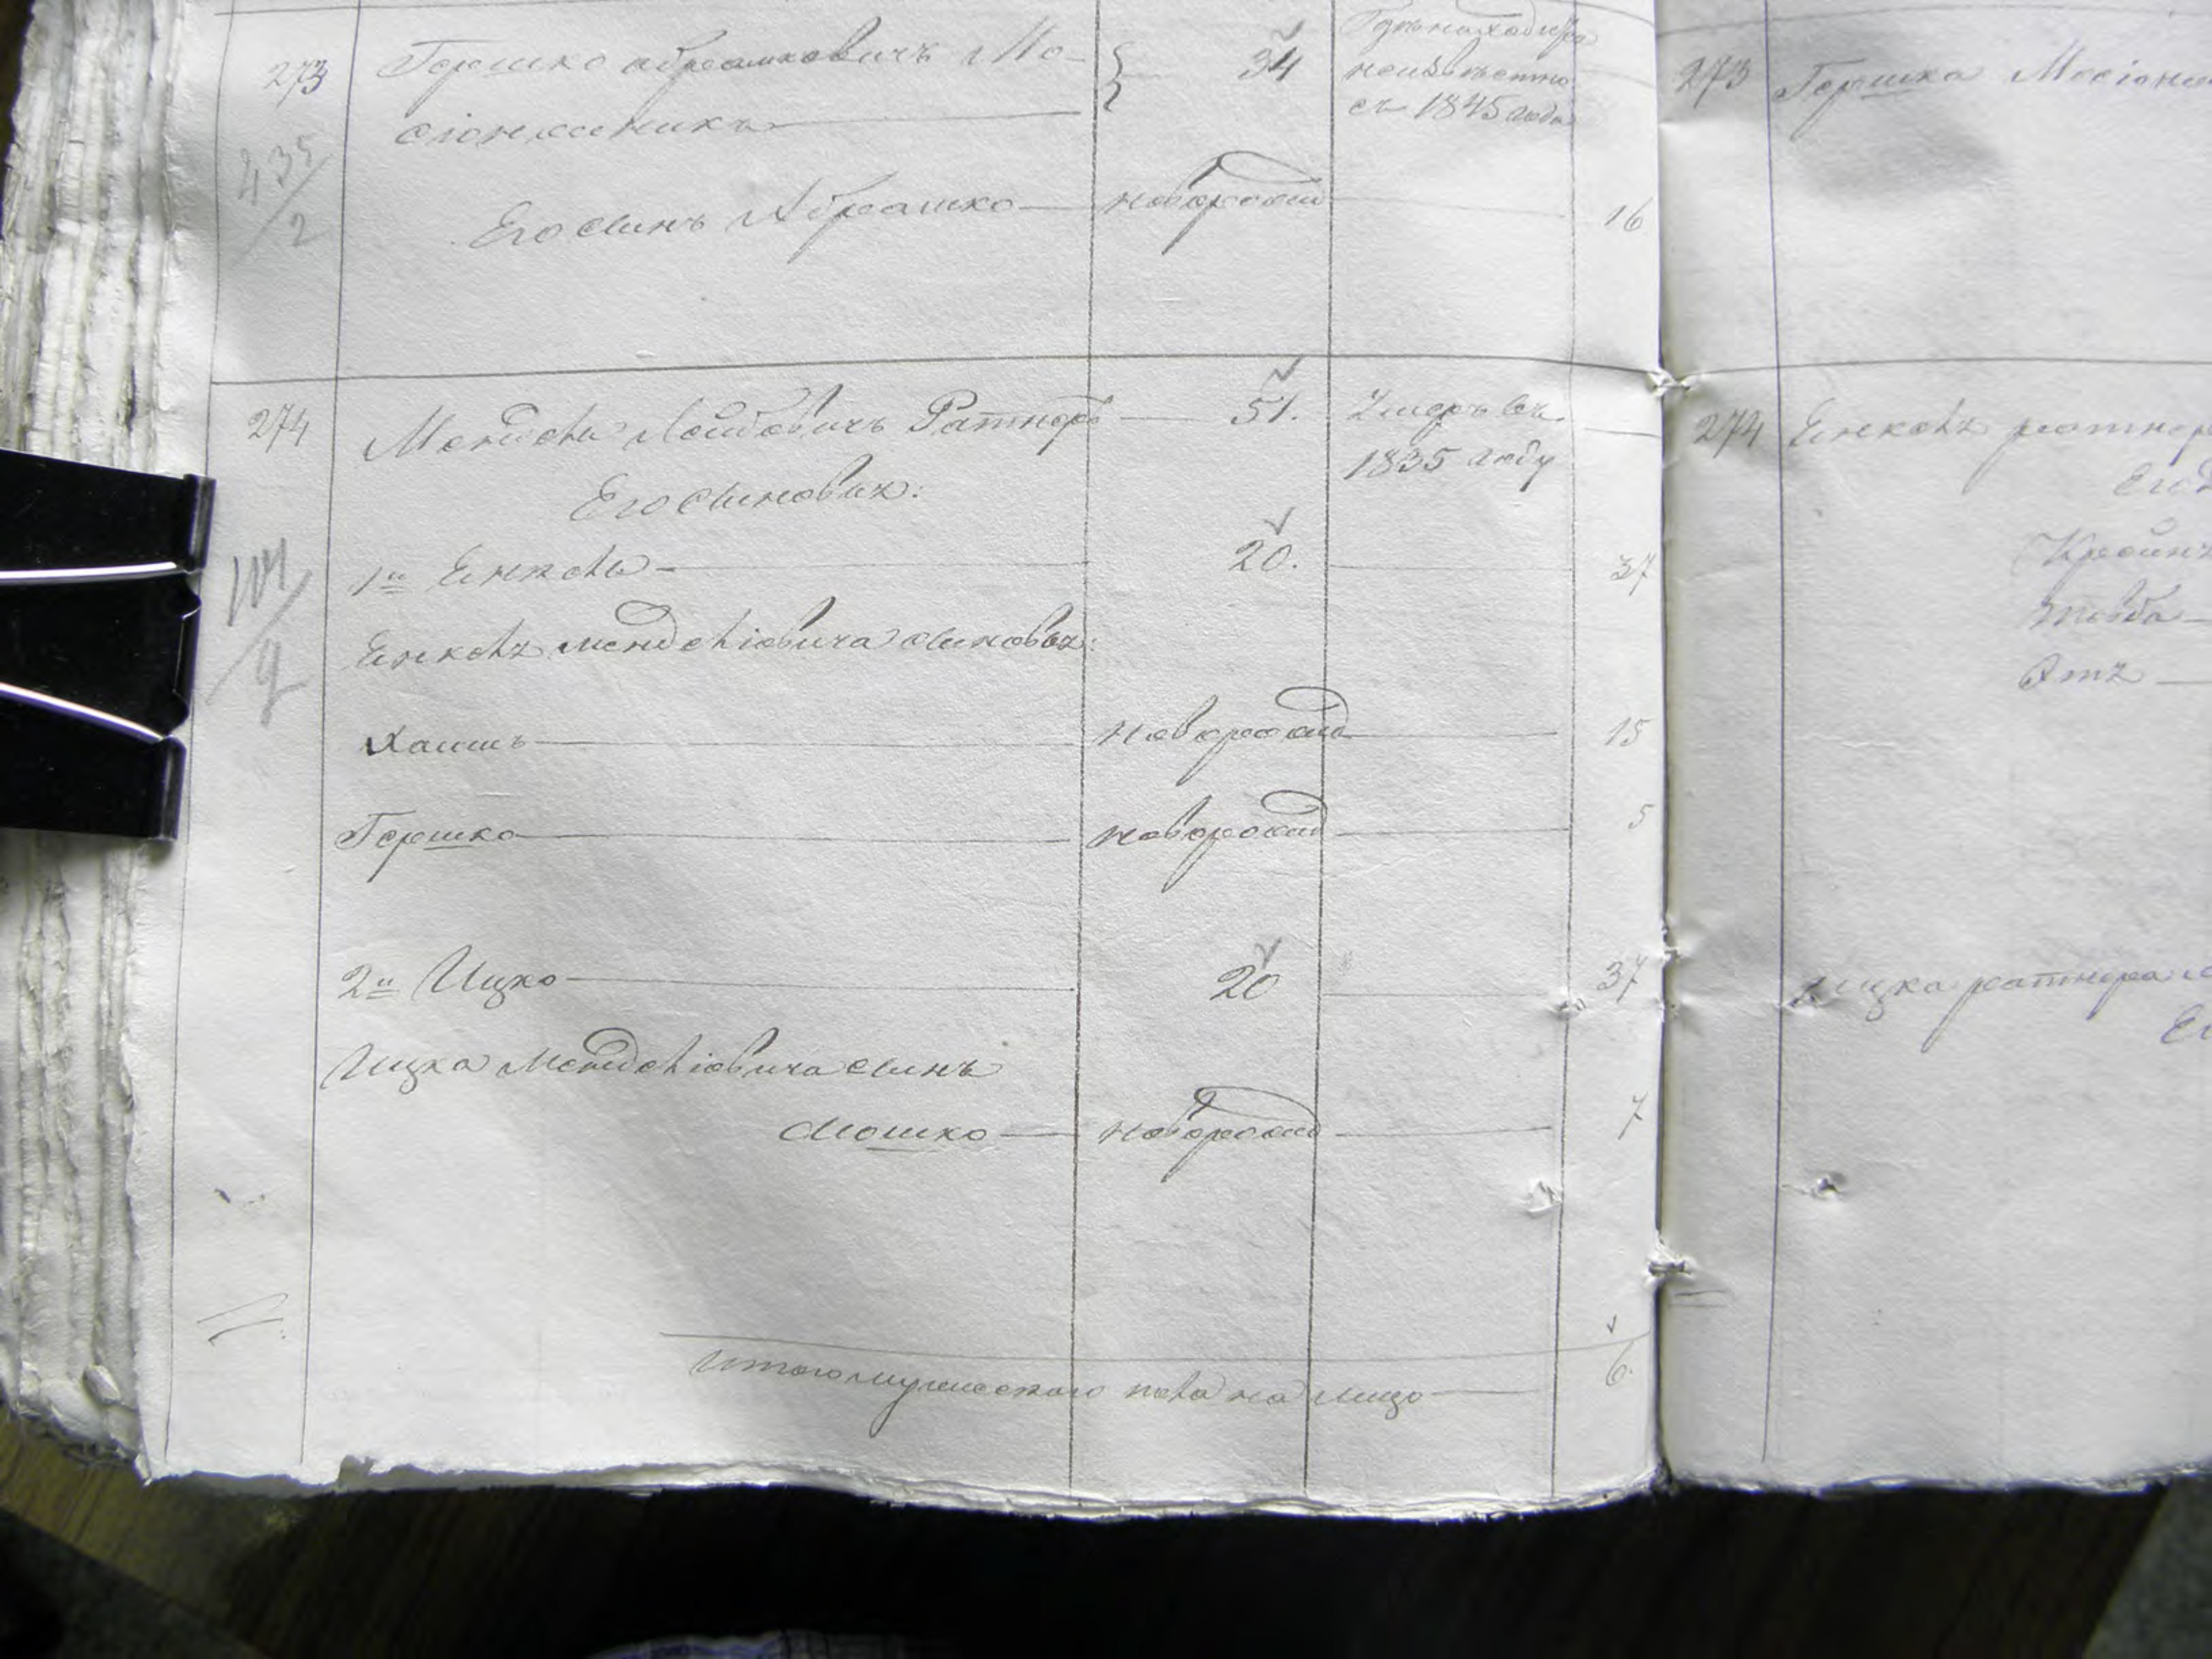 273 Гершко Абрамковичъ Мо- 34 Гдѣ находится
неизвѣстно
съ 1845 года
435/2
Его сынъ Абрашко новорожд 16
274 Мендель Лейбовичъ Ратнеръ 51. Умеръ въ
1835 году
Его сыновья:
1й Енкель 20. 37
Енкеля Менделіовича сыновья:
Хаимъ новорожд 15
Гершко новорожд 5
2й Ицко 20 37
Ицка Менделіовича сынъ
Мошко новорожд 7
Итого мужескаго пола на лицо 6.
273 Гершка
274 Енкеля Ратнер
Ицка Ратнера